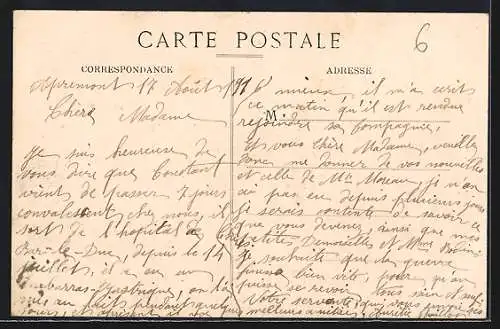 CARTE POSTALE
6
CORRESPONDANCE
ADRESSE
Apremont 17 Août 191
Chère Madame
Je suis heureuse de
vous dire que Constant
vient de passer 7 jours
convalescent chez nous, il
sort de l'hôpital de
Bar-le-Duc, depuis le 14
juillet, il a eu un
embarras gastrique, on l'a
mis au
mieux, il m'a écrit
ce matin qu'il est rendu
M
rejoindre sa Compagnie,
et vous Chère Madame, veuillez
donc me donner de vos nouvelles
et celle de Mme Moreau, je n'en
ai pas eu depuis plusieurs jours
je serais contente de savoir ce
que vous devenez, ainsi que mes
petites Demoiselles et Mme
je souhaite que la guerre
finisse bien vite, pour qu'on
puisse se revoir. Tous s'en et
Votre servante, qui vous envoie ses
meilleures amitiés,